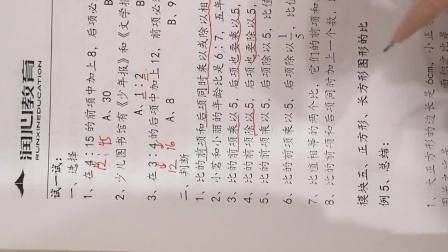 润心教育
RUNXINEDUCATION
试一试：
一、选择
1、在 4：15 的前项中加上 8，后项必
12：45
A、30
2、少儿图书馆有《少年报》和《文学报
A、1：2
3、在 3：4 的后项中加上 12，前项必
12 16
A、8 B、9
二、判断
1、比的前项和后项同时乘以或除以相
2、小茗和小丽的年龄比是 6：7，五年
3、比的前项乘以 5，后项也要乘以 5，
4、比的前项除以 5，后项也要除以 5，
5、比的前项乘以 5，后项除以 5，比值
6、比的前项乘以 5，后项除以 1/5，比值
7、比值相等的两个比，它们的前项和
8、比的前项和后项同时加上一个数，
模块五、正方形、长方形图形的比
例 5、总结：
1、大正方形的边长是 6cm，小正